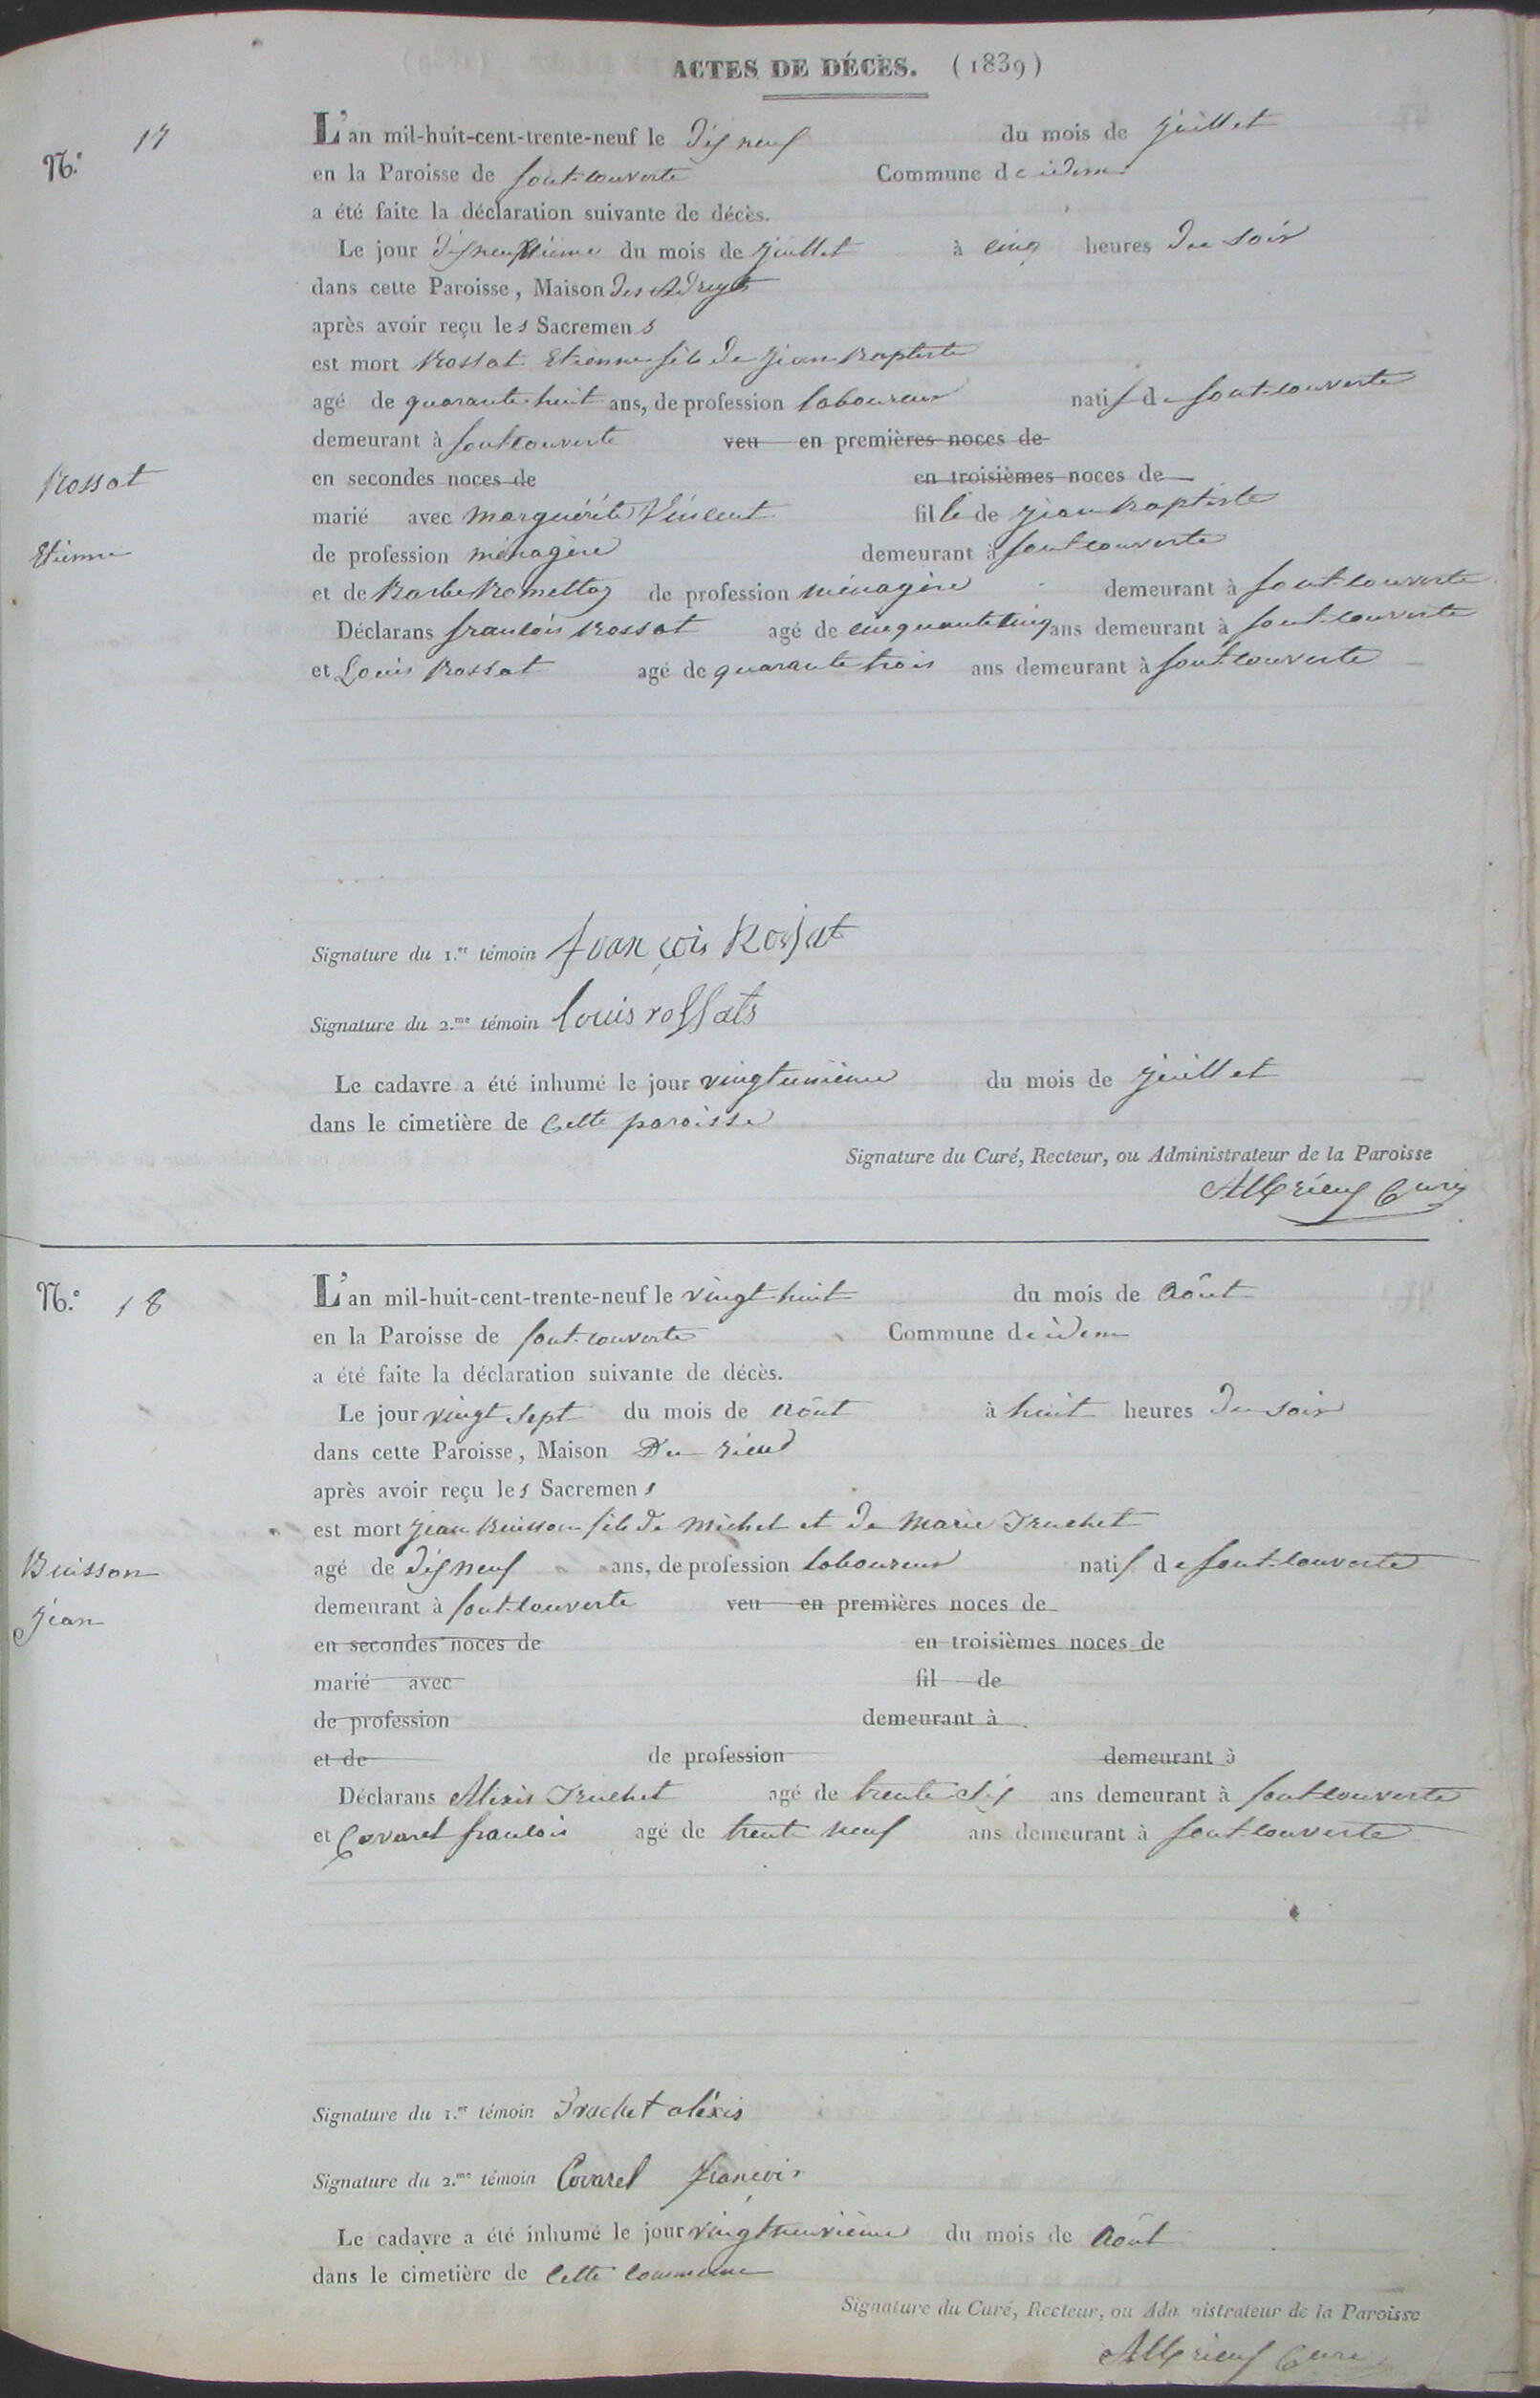 ACTES DE DÉCÈS. (1839)
N.° 17
L'an mil-huit-cent-trente-neuf le dix neuf du mois de juillet
en la Paroisse de fontcouverte Commune de idem
a été faite la déclaration suivante de décès.
Le jour dixneuvième du mois de juillet à cinq heures du soir
dans cette Paroisse, Maison des Adreyts
après avoir reçu les Sacremens
est mort Rossat Etienne fils de jean Baptiste
agé de quarante huit ans, de profession laboureur natif de fontcouverte
demeurant à fontcouverte veu en premières noces de
Rossat
en secondes noces de en troisièmes noces de
marié avec Marguérite Vincent fille de jean Baptiste
Etienne
de profession ménagère demeurant à fontcouverte
et de Barbe de profession ménagère demeurant à fontcouverte
Déclarans francois Rossat agé de cinquante cinq ans demeurant à fontcouverte
et Louis Rossat agé de quarante trois ans demeurant à fontcouverte
Signature du 1.er témoin françois Rossat
Signature du 2.me témoin louis rossats
Le cadavre a été inhumé le jour vingtunième du mois de juillet
dans le cimetière de cette paroisse
Signature du Curé, Recteur, ou Administrateur de la Paroisse
Curé
N.° 18
L'an mil-huit-cent-trente-neuf le vingt huit du mois de Août
en la Paroisse de fontcouverte Commune de idem
a été faite la déclaration suivante de décès.
Le jour vingt sept du mois de Août à huit heures du soir
dans cette Paroisse, Maison Du rieux
après avoir reçu les Sacremens
est mort jean Buisson fils de Michel et de Marie Truchet
Buisson
agé de dix neuf ans, de profession laboureur natif de fontcouverte
jean
demeurant à fontcouverte veu en premières noces de
en secondes noces de en troisièmes noces de
marié avec fil de
de profession demeurant à
et de de profession demeurant à
Déclarans Alexis Truchet agé de trente dix ans demeurant à fontcouverte
et Covarel francois agé de trente neuf ans demeurant à fontcouverte
Signature du 1.er témoin Truchet aléxis
Signature du 2.me témoin Covarel françois
Le cadavre a été inhumé le jour vingtneuvième du mois de Août
dans le cimetière de cette commune
Signature du Curé, Recteur, ou Administrateur de la Paroisse
Curé